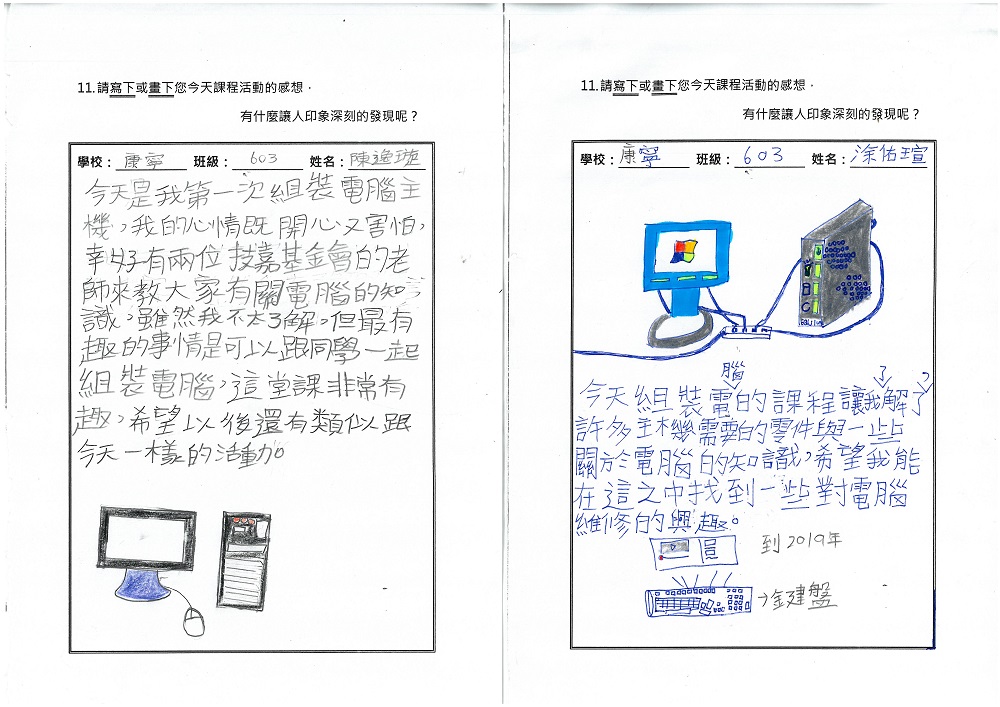 11.請寫下或畫下您今天課程活動的感想，
有什麼讓人印象深刻的發現呢？
學校：康寧 班級：603 姓名：陳逸璇
今天是我第一次組裝電腦主
機，我的心情既開心又害怕，
幸好有兩位技嘉基金會的老
師來教大家有關電腦的知
識，雖然我不太了解，但最有
趣的事情是可以跟同學一起
組裝電腦，這堂課非常有
趣，希望以後還有類似跟
今天一樣的活動。
11.請寫下或畫下您今天課程活動的感想，
有什麼讓人印象深刻的發現呢？
學校：康寧 班級：603 姓名：涂佑瑄
腦
今天組裝電的課程讓我解了
許多主機需要的零件與一些
關於電腦的知識，希望我能
在這之中找到一些對電腦
維修的興趣。
到2019年
→鍵盤